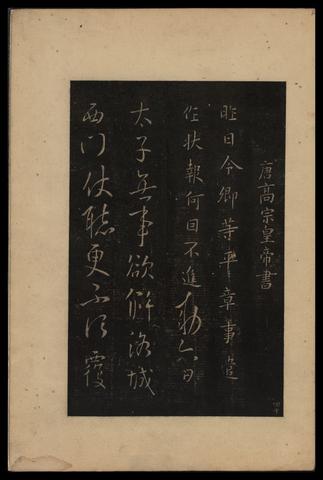 唐高宗皇帝書
昨日令卿等平章事宜
作狀報何因不進敕六日
太子無事欲解洛城
西門仗聽更不須覆
四十